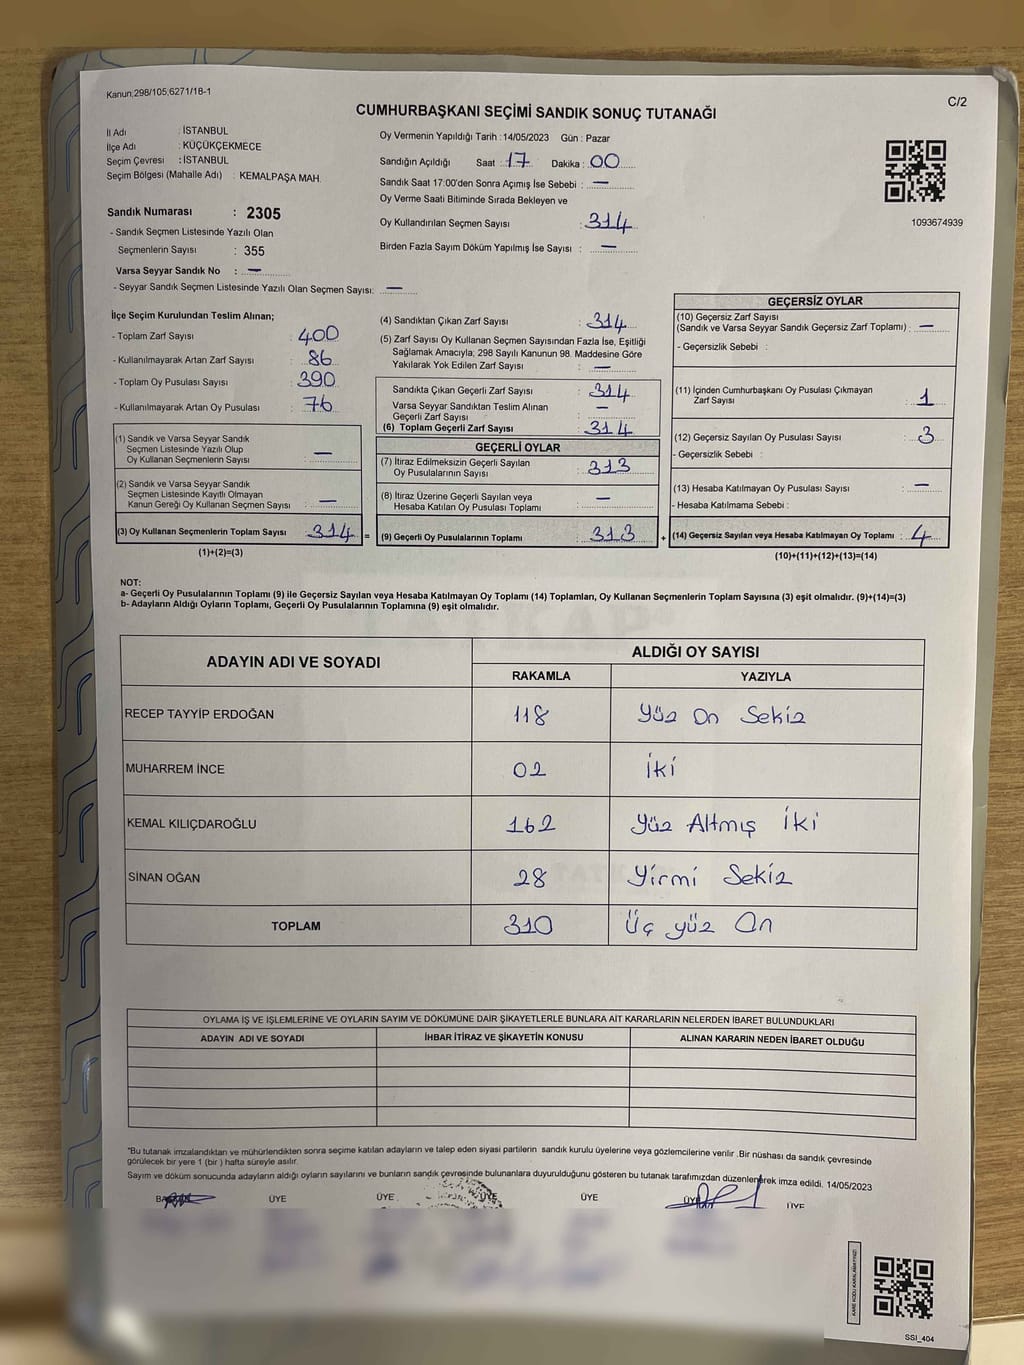 Kanun,298/105,6271/18-1
C/2
CUMHURBAŞKANI SEÇİMİ SANDIK SONUÇ TUTANAĞI
İl Adı : İSTANBUL
İlçe Adı : KÜÇÜKÇEKMECE
Seçim Çevresi : İSTANBUL
Seçim Bölgesi (Mahalle Adı) : KEMALPAŞA MAH.
Sandık Numarası : 2305
- Sandık Seçmen Listesinde Yazılı Olan
Seçmenlerin Sayısı : 355
Varsa Seyyar Sandık No : —
- Seyyar Sandık Seçmen Listesinde Yazılı Olan Seçmen Sayısı: —
Oy Vermenin Yapıldığı Tarih : 14/05/2023 Gün : Pazar
Sandığın Açıldığı Saat : 17 Dakika : 00
Sandık Saat 17:00'den Sonra Açımış İse Sebebi : —
Oy Verme Saati Bitiminde Sırada Bekleyen ve
Oy Kullandırılan Seçmen Sayısı : 314
Birden Fazla Sayım Döküm Yapılmış İse Sayısı : —
1093674939
İlçe Seçim Kurulundan Teslim Alınan;
- Toplam Zarf Sayısı : 400
- Kullanılmayarak Artan Zarf Sayısı : 86
- Toplam Oy Pusulası Sayısı : 390
- Kullanılmayarak Artan Oy Pusulası : 76
(1) Sandık ve Varsa Seyyar Sandık
Seçmen Listesinde Yazılı Olup
Oy Kullanan Seçmenlerin Sayısı : —
(2) Sandık ve Varsa Seyyar Sandık
Seçmen Listesinde Kayıtlı Olmayan
Kanun Gereği Oy Kullanan Seçmen Sayısı : —
(3) Oy Kullanan Seçmenlerin Toplam Sayısı : 314 =
(1)+(2)=(3)
(4) Sandıktan Çıkan Zarf Sayısı : 314
(5) Zarf Sayısı Oy Kullanan Seçmen Sayısından Fazla İse, Eşitliği
Sağlamak Amacıyla; 298 Sayılı Kanunun 98. Maddesine Göre
Yakılarak Yok Edilen Zarf Sayısı : —
Sandıkta Çıkan Geçerli Zarf Sayısı : 314
Varsa Seyyar Sandıktan Teslim Alınan
Geçerli Zarf Sayısı : —
(6) Toplam Geçerli Zarf Sayısı : 314
GEÇERLİ OYLAR
(7) İtiraz Edilmeksizin Geçerli Sayılan
Oy Pusulalarının Sayısı : 313
(8) İtiraz Üzerine Geçerli Sayılan veya
Hesaba Katılan Oy Pusulası Toplamı : —
(9) Geçerli Oy Pusulalarının Toplamı : 313 +
GEÇERSİZ OYLAR
(10) Geçersiz Zarf Sayısı
(Sandık ve Varsa Seyyar Sandık Geçersiz Zarf Toplamı) : —
- Geçersizlik Sebebi :
(11) İçinden Cumhurbaşkanı Oy Pusulası Çıkmayan
Zarf Sayısı : 1
(12) Geçersiz Sayılan Oy Pusulası Sayısı : 3
- Geçersizlik Sebebi :
(13) Hesaba Katılmayan Oy Pusulası Sayısı : —
- Hesaba Katılmama Sebebi :
(14) Geçersiz Sayılan veya Hesaba Katılmayan Oy Toplamı : 4
(10)+(11)+(12)+(13)=(14)
NOT:
a- Geçerli Oy Pusulalarının Toplamı (9) ile Geçersiz Sayılan veya Hesaba Katılmayan Oy Toplamı (14) Toplamları, Oy Kullanan Seçmenlerin Toplam Sayısına (3) eşit olmalıdır. (9)+(14)=(3)
b- Adayların Aldığı Oyların Toplamı, Geçerli Oy Pusulalarının Toplamına (9) eşit olmalıdır.
ADAYIN ADI VE SOYADI ALDIĞI OY SAYISI
RAKAMLA YAZIYLA
RECEP TAYYİP ERDOĞAN 118 Yüz On Sekiz
MUHARREM İNCE 02 İki
KEMAL KILIÇDAROĞLU 162 Yüz Altmış İki
SİNAN OĞAN 28 Yirmi Sekiz
TOPLAM 310 Üç yüz On
OYLAMA İŞ VE İŞLEMLERİNE VE OYLARIN SAYIM VE DÖKÜMÜNE DAİR ŞİKAYETLERLE BUNLARA AİT KARARLARIN NELERDEN İBARET BULUNDUKLARI
ADAYIN ADI VE SOYADI İHBAR İTİRAZ VE ŞİKAYETİN KONUSU ALINAN KARARIN NEDEN İBARET OLDUĞU
*Bu tutanak imzalandıktan ve mühürlendikten sonra seçime katılan adayların ve talep eden siyasi partilerin sandık kurulu üyelerine veya gözlemcilerine verilir .Bir nüshası da sandık çevresinde
görülecek bir yere 1 (bir ) hafta süreyle asılır.
Sayım ve döküm sonucunda adayların aldığı oyların sayılarını ve bunların sandık çevresinde bulunanlara duyurulduğunu gösteren bu tutanak tarafımızdan düzenlenerek imza edildi. 14/05/2023
ÜYE ÜYE ÜYE ÜYE ÜYE ÜYE
SSI_404